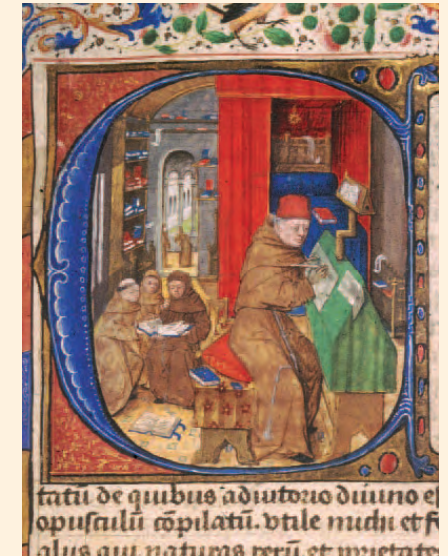 C
tatū de quibus adiutorio diuino e
opusculū cōpilatū. vtile michi et f
qui naturas rerū et